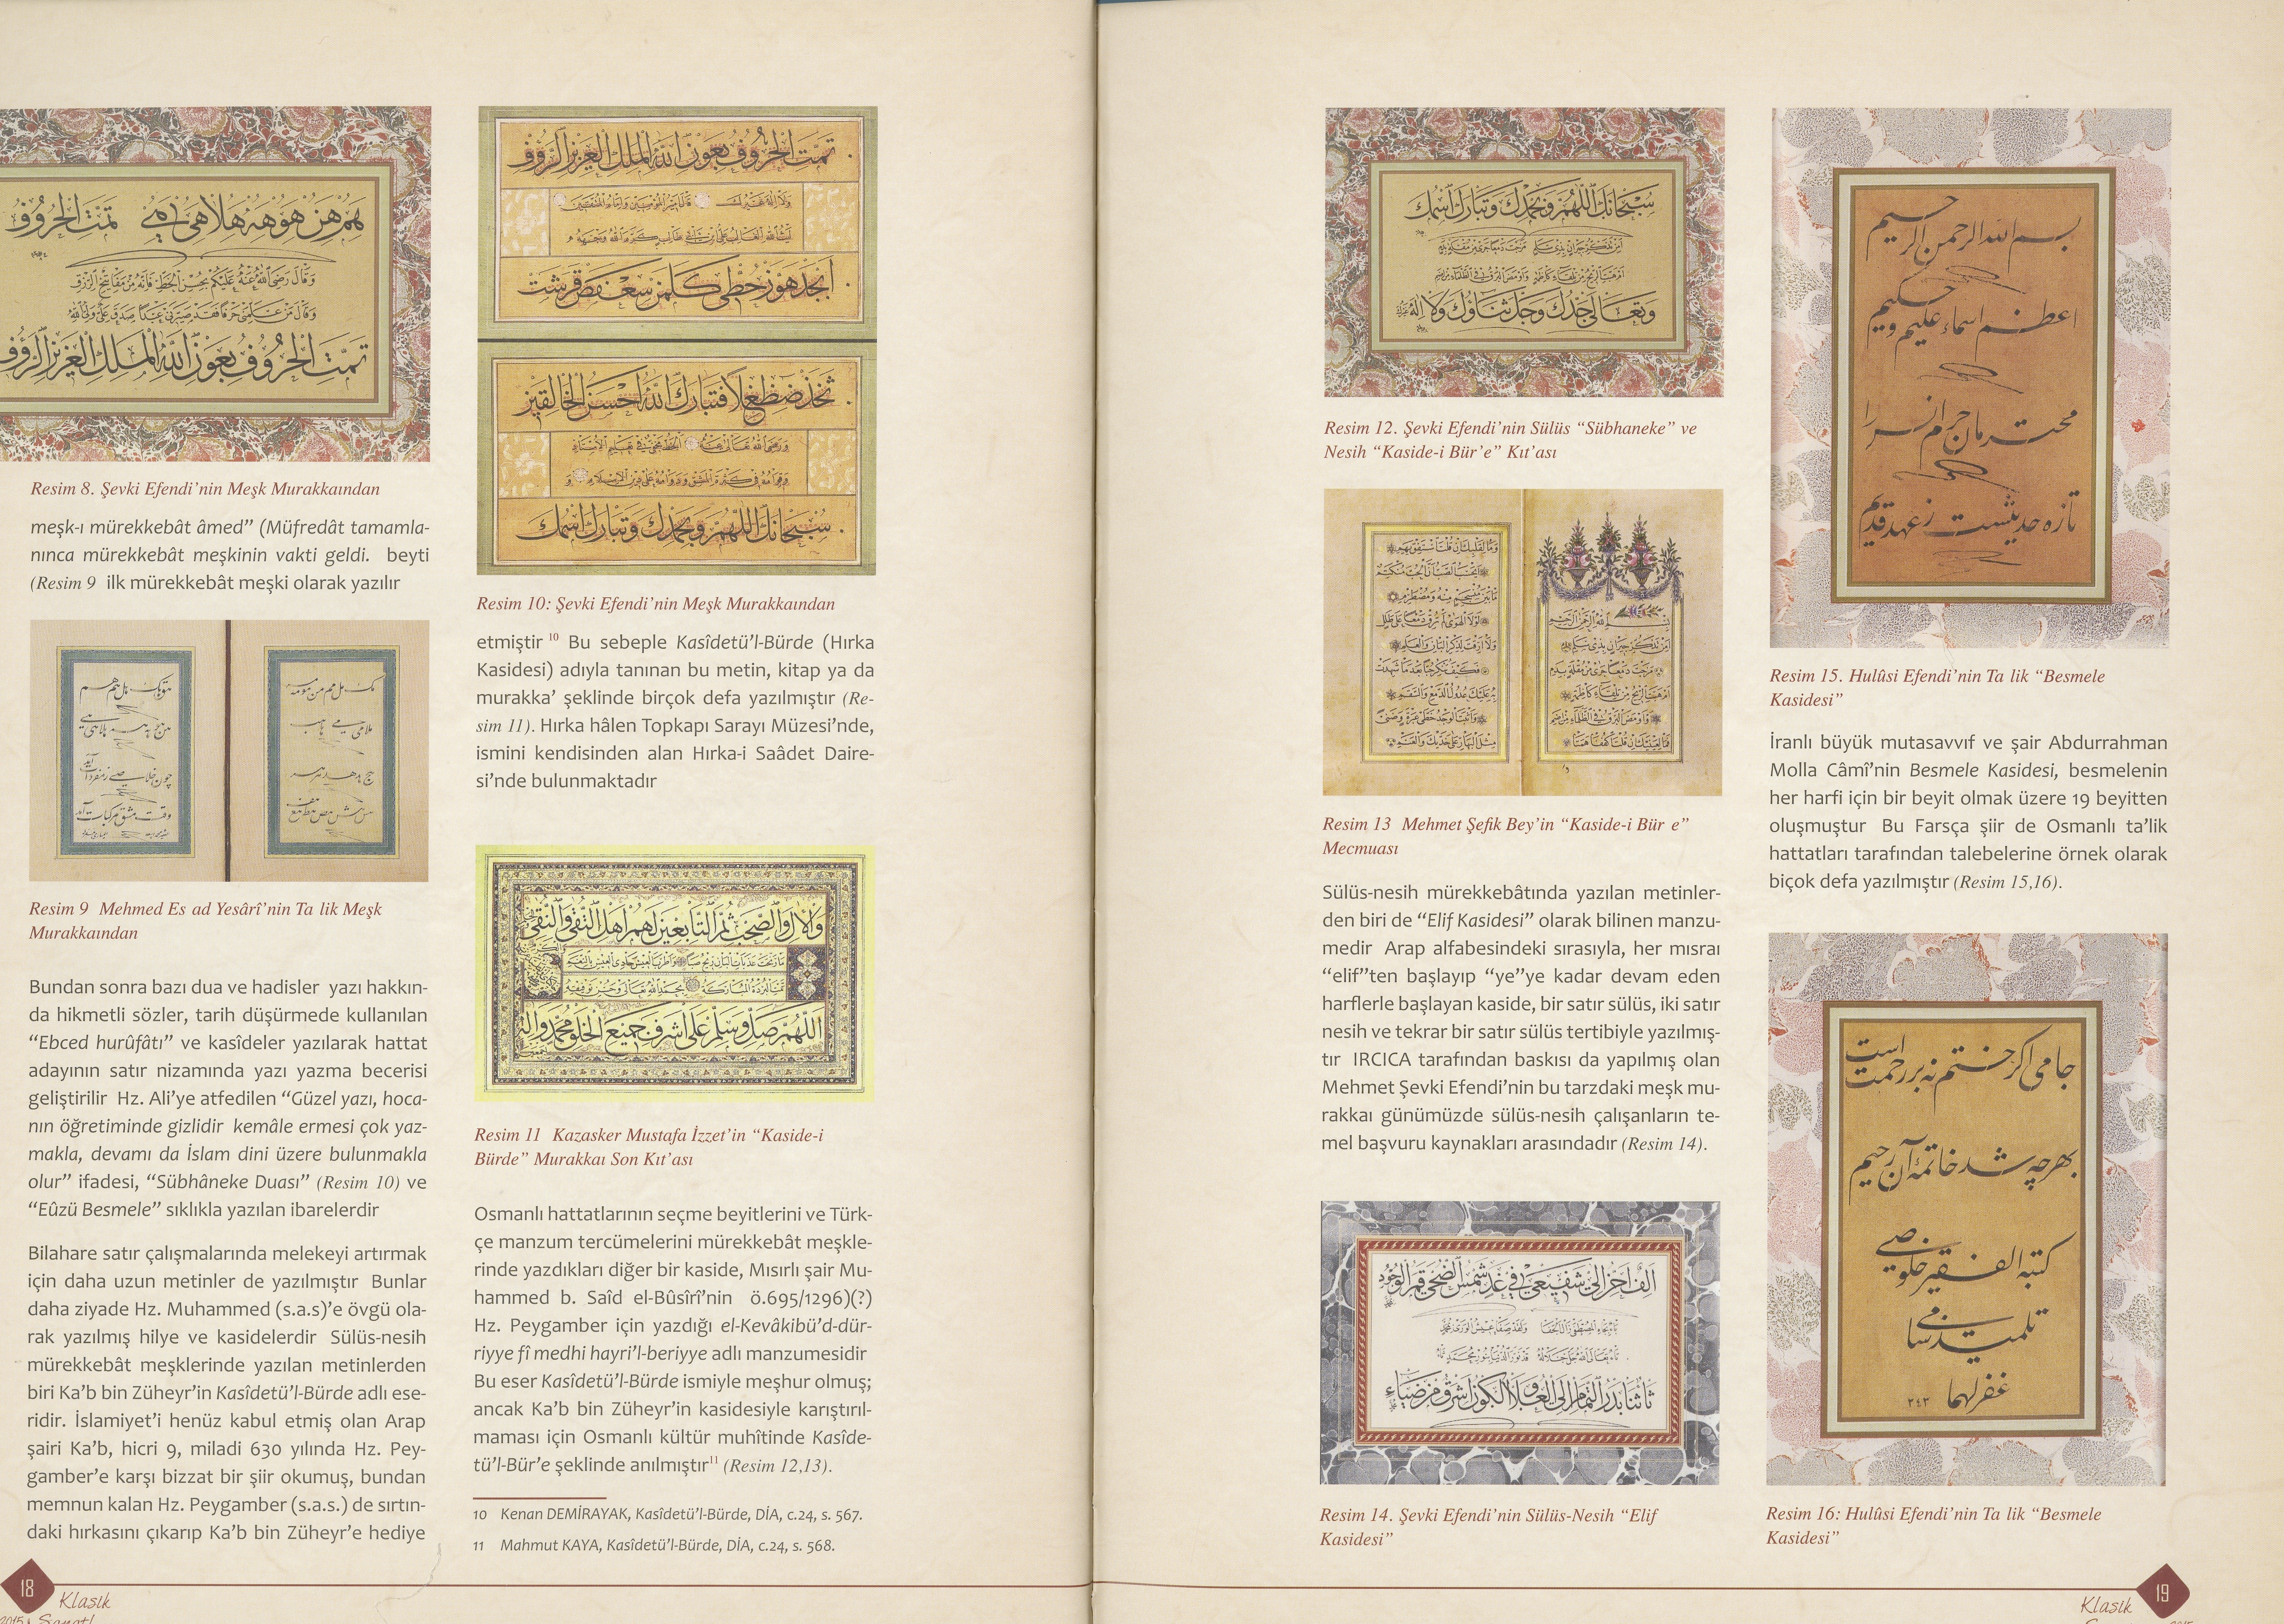 Resim 8. Şevki Efendi’nin Meşk Murakkaından
meşk-ı mürekkebât âmed” (Müfredât tamamla-
nınca mürekkebât meşkinin vakti geldi. beyti
(Resim 9 ilk mürekkebât meşki olarak yazılır
Resim 9 Mehmed Es ad Yesârî’nin Ta lik Meşk
Murakkaından
Bundan sonra bazı dua ve hadisler yazı hakkın-
da hikmetli sözler, tarih düşürmede kullanılan
“Ebced hurûfâtı” ve kasîdeler yazılarak hattat
adayının satır nizamında yazı yazma becerisi
geliştirilir Hz. Ali’ye atfedilen “Güzel yazı, hoca-
nın öğretiminde gizlidir kemâle ermesi çok yaz-
makla, devamı da İslam dini üzere bulunmakla
olur” ifadesi, “Sübhâneke Duası” (Resim 10) ve
“Eûzü Besmele” sıklıkla yazılan ibarelerdir
Bilahare satır çalışmalarında melekeyi artırmak
için daha uzun metinler de yazılmıştır Bunlar
daha ziyade Hz. Muhammed (s.a.s)’e övgü ola-
rak yazılmış hilye ve kasidelerdir Sülüs-nesih
mürekkebât meşklerinde yazılan metinlerden
biri Ka’b bin Züheyr’in Kasîdetü’l-Bürde adlı ese-
ridir. İslamiyet’i henüz kabul etmiş olan Arap
şairi Ka’b, hicri 9, miladi 630 yılında Hz. Pey-
gamber’e karşı bizzat bir şiir okumuş, bundan
memnun kalan Hz. Peygamber (s.a.s.) de sırtın-
daki hırkasını çıkarıp Ka’b bin Züheyr’e hediye
18
Klasik
2015
تمت الحروف بعون الله الملك العزيز الرؤوف
ابجد هوز حطي كلمن سعفص قرشت
ثخذ ضظغلا فتبارك الله احسن الخالقين
سبحانك اللهم وبحمدك وتبارك اسمك
Resim 10: Şevki Efendi’nin Meşk Murakkaından
etmiştir 10 Bu sebeple Kasîdetü’l-Bürde (Hırka
Kasidesi) adıyla tanınan bu metin, kitap ya da
murakka’ şeklinde birçok defa yazılmıştır (Re-
sim 11). Hırka hâlen Topkapı Sarayı Müzesi’nde,
ismini kendisinden alan Hırka-i Saâdet Daire-
si’nde bulunmaktadır
Resim 11 Kazasker Mustafa İzzet’in “Kaside-i
Bürde” Murakkaı Son Kıt’ası
Osmanlı hattatlarının seçme beyitlerini ve Türk-
çe manzum tercümelerini mürekkebât meşkle-
rinde yazdıkları diğer bir kaside, Mısırlı şair Mu-
hammed b. Saîd el-Bûsîrî’nin ö.695/1296)(?)
Hz. Peygamber için yazdığı el-Kevâkibü’d-dür-
riyye fî medhi hayri’l-beriyye adlı manzumesidir
Bu eser Kasîdetü’l-Bürde ismiyle meşhur olmuş;
ancak Ka’b bin Züheyr’in kasidesiyle karıştırıl-
maması için Osmanlı kültür muhîtinde Kasîde-
tü’l-Bür’e şeklinde anılmıştır11 (Resim 12,13).
10 Kenan DEMİRAYAK, Kasîdetü’l-Bürde, DİA, c.24, s. 567.
11 Mahmut KAYA, Kasîdetü’l-Bürde, DİA, c.24, s. 568.
سبحانك اللهم وبحمدك وتبارك اسمك
وتعالى جدك وجل ثناؤك ولا اله
Resim 12. Şevki Efendi’nin Sülüs “Sübhaneke” ve
Nesih “Kaside-i Bür’e” Kıt’ası
Resim 13 Mehmet Şefik Bey’in “Kaside-i Bür e”
Mecmuası
Sülüs-nesih mürekkebâtında yazılan metinler-
den biri de “Elif Kasidesi” olarak bilinen manzu-
medir Arap alfabesindeki sırasıyla, her mısraı
“elif”ten başlayıp “ye”ye kadar devam eden
harflerle başlayan kaside, bir satır sülüs, iki satır
nesih ve tekrar bir satır sülüs tertibiyle yazılmış-
tır IRCICA tarafından baskısı da yapılmış olan
Mehmet Şevki Efendi’nin bu tarzdaki meşk mu-
rakkaı günümüzde sülüs-nesih çalışanların te-
mel başvuru kaynakları arasındadır (Resim 14).
Resim 14. Şevki Efendi’nin Sülüs-Nesih “Elif
Kasidesi”
بسم الله الرحمن الرحيم
اعظم اسماء عليم و حكيم
محترمان حرم انس را
تازه حديثيست ز عهد قديم
Resim 15. Hulûsi Efendi’nin Ta lik “Besmele
Kasidesi”
İranlı büyük mutasavvıf ve şair Abdurrahman
Molla Câmî’nin Besmele Kasidesi, besmelenin
her harfi için bir beyit olmak üzere 19 beyitten
oluşmuştur Bu Farsça şiir de Osmanlı ta’lik
hattatları tarafından talebelerine örnek olarak
biçok defa yazılmıştır (Resim 15,16).
جامى اگر ختم نه بر رحمت است
بهر چه شد خاتمه آن رحيم
كتبه الفقير خلوصى
تلميذ سامى
غفر لهما
Resim 16: Hulûsi Efendi’nin Ta lik “Besmele
Kasidesi”
Klasik
19